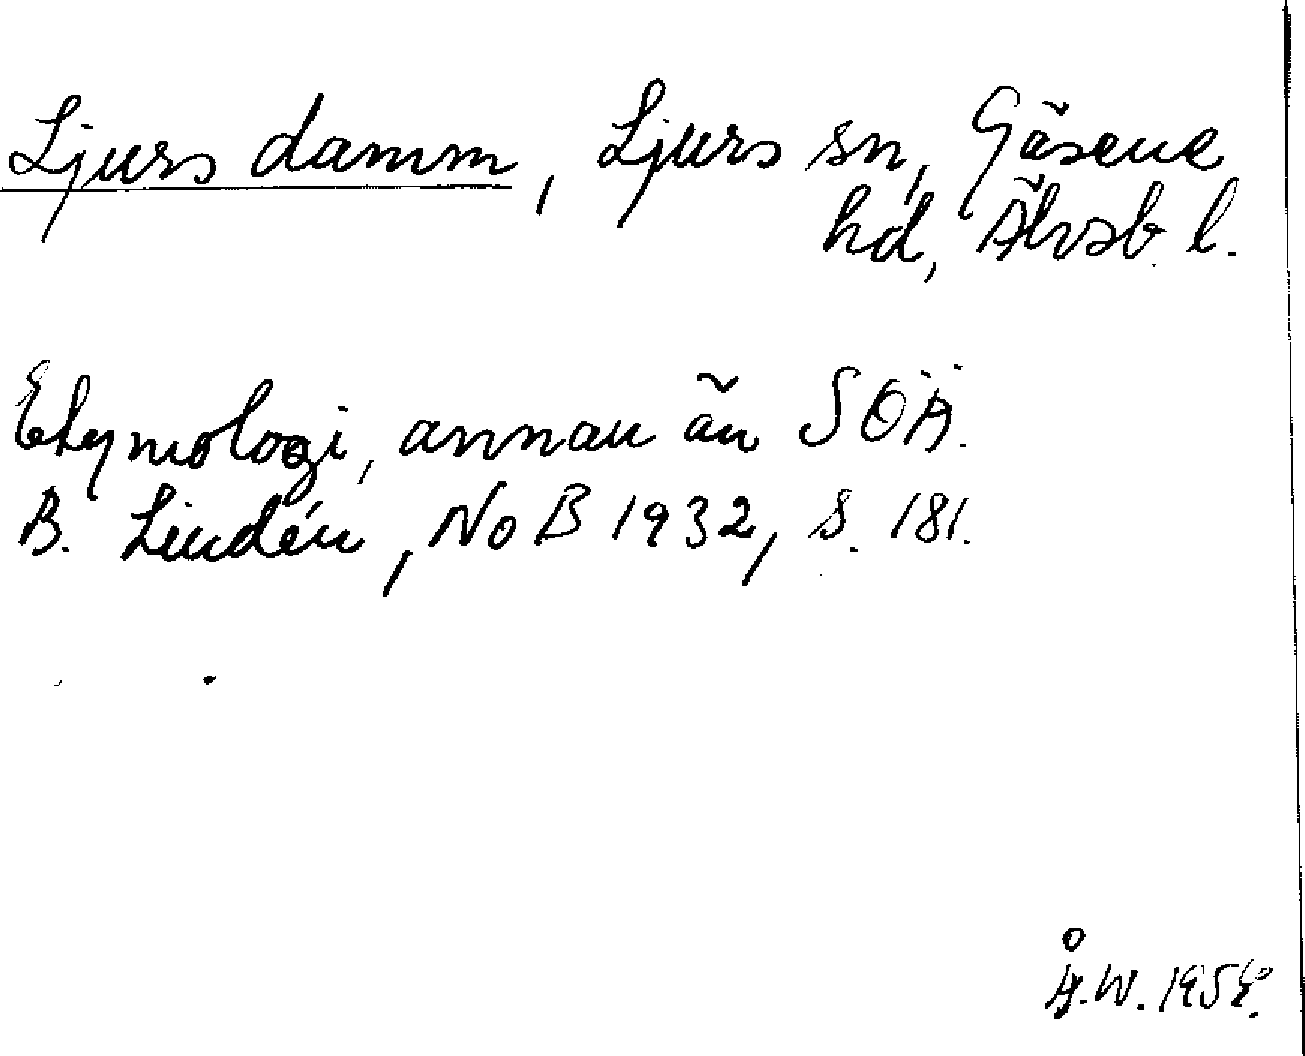 Ljurs damm, Ljurs sn, Gäsene
hd, Älvsb. l.
Etymologi, annan än SOÄ.
B. Lindén, NoB 1932, s. 181.
Å.W. 1954.